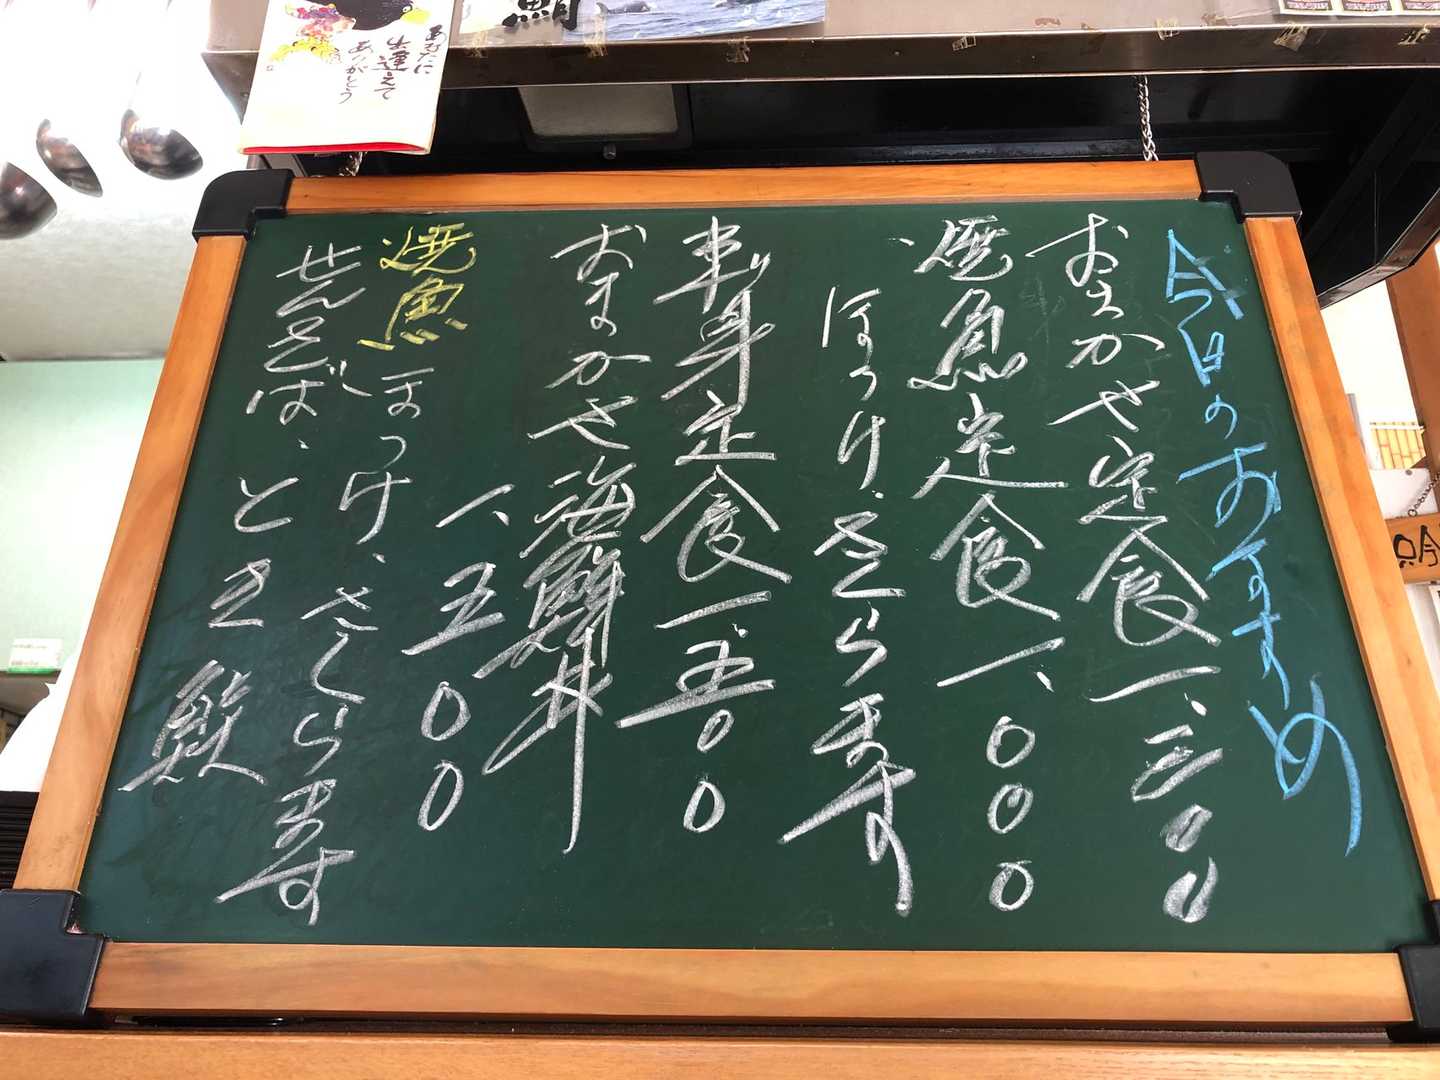 今日のおすすめ
おまかせ定食 一、三〇〇
焼魚定食 一、〇〇〇
ほっけ、さくらます
刺身定食 一、五〇〇
おまかせ海鮮丼
一、五〇〇
焼魚 ほっけ、さくらます
とき鮭
あなたに
出逢えて
ありがとう